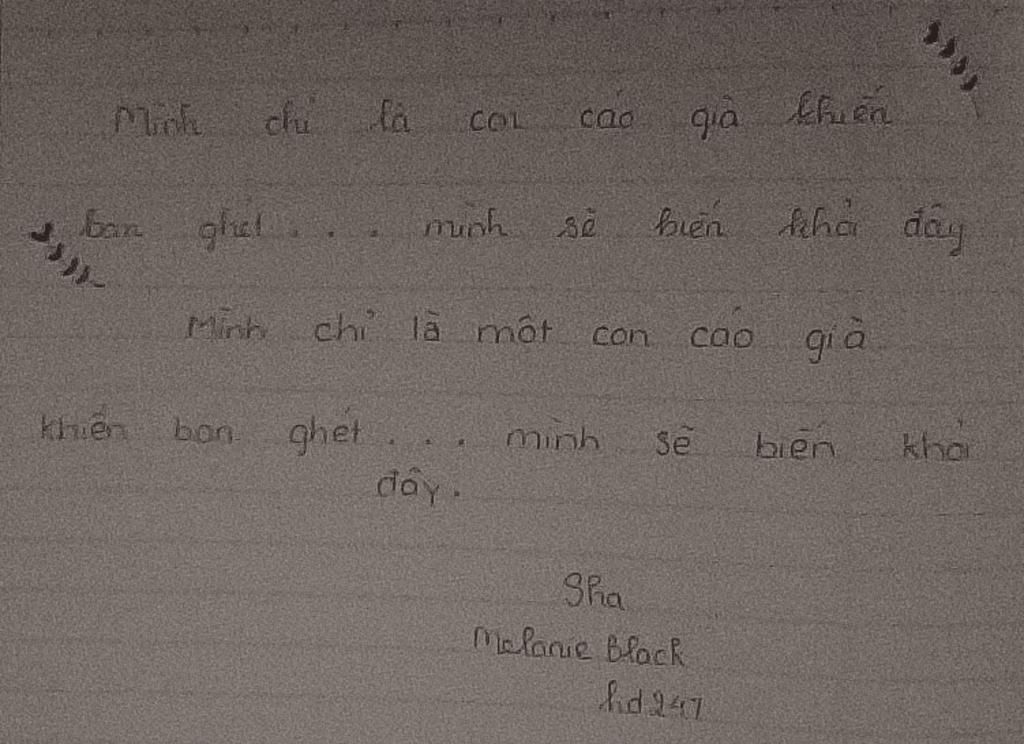 Mình chỉ là con cáo già khiến
bạn ghét . . . mình sẽ biến khỏi đây
Mình chỉ là một con cáo già
khiến bạn ghét . . . mình sẽ biến khỏi
đây.
Sha
Melanie Black
hd247